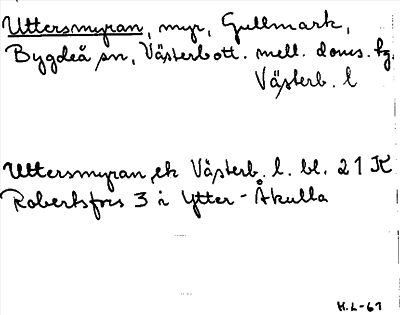 Uttersmyran, myr, Gullmark,
Bygdeå sn, Västerbott. mell. doms. tg.
Västerb. l
Uttersmyran ek Västerb. l. bl. 21 K
Robertsfors 3 i Ytter-Åkulla
H.L-67